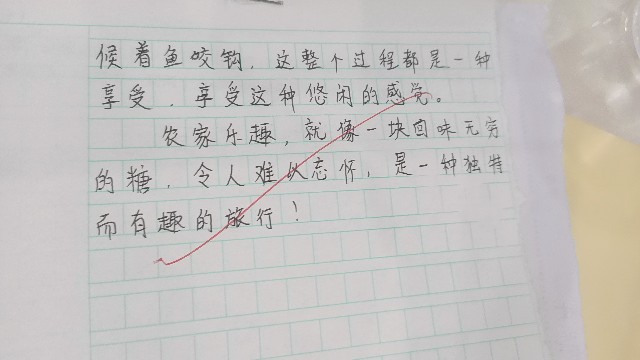 候着鱼咬钩，这整个过程都是一种
享受，享受这种悠闲的感觉。
农家乐趣，就像一块回味无穷
的糖，令人难以忘怀，是一种独特
而有趣的旅行！